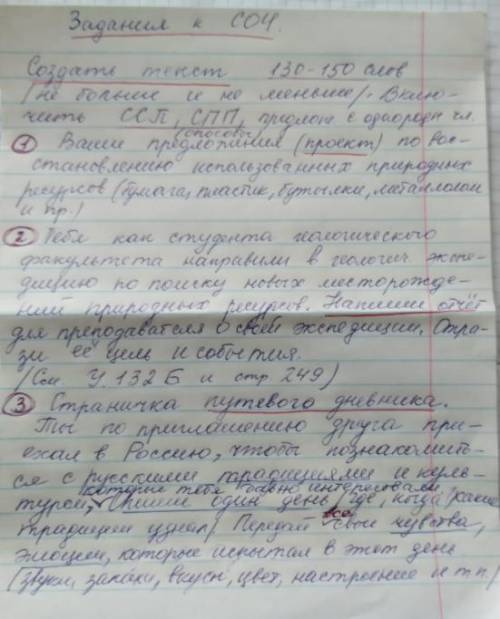 Задания к СОЧ.
Создать текст 130-150 слов
/не больше и не меньше/. Вклю-
чить ССП, СПП, предлож. с однородн. чл.
(способы)
① Ваши предложения (проект) по вос-
становлению использованных природных
ресурсов (бумага, пластик, бутылки, металлолом
и пр.)
② Тебя как студента геологического
факультета направили в геологич. экспе-
дицию по поиску новых месторожде-
ний природных ресурсов. Напиши отчёт
для преподавателя о своей экспедиции. Отра-
зи её цель и события.
/См. У. 132 Б и стр. 249)
③ Страничка путевого дневника.
Ты по приглашению друга при-
ехал в Россию, чтобы познакомить-
ся с русскими традициями и куль-
турой, которые тебя давно интересовали.
Опиши один день /где, когда, какие
традиции узнал/ Передай все свои чувства,
эмоции, которые испытал в этот день
(звуки, запахи, вкусы, цвет, настроение и т.п.)